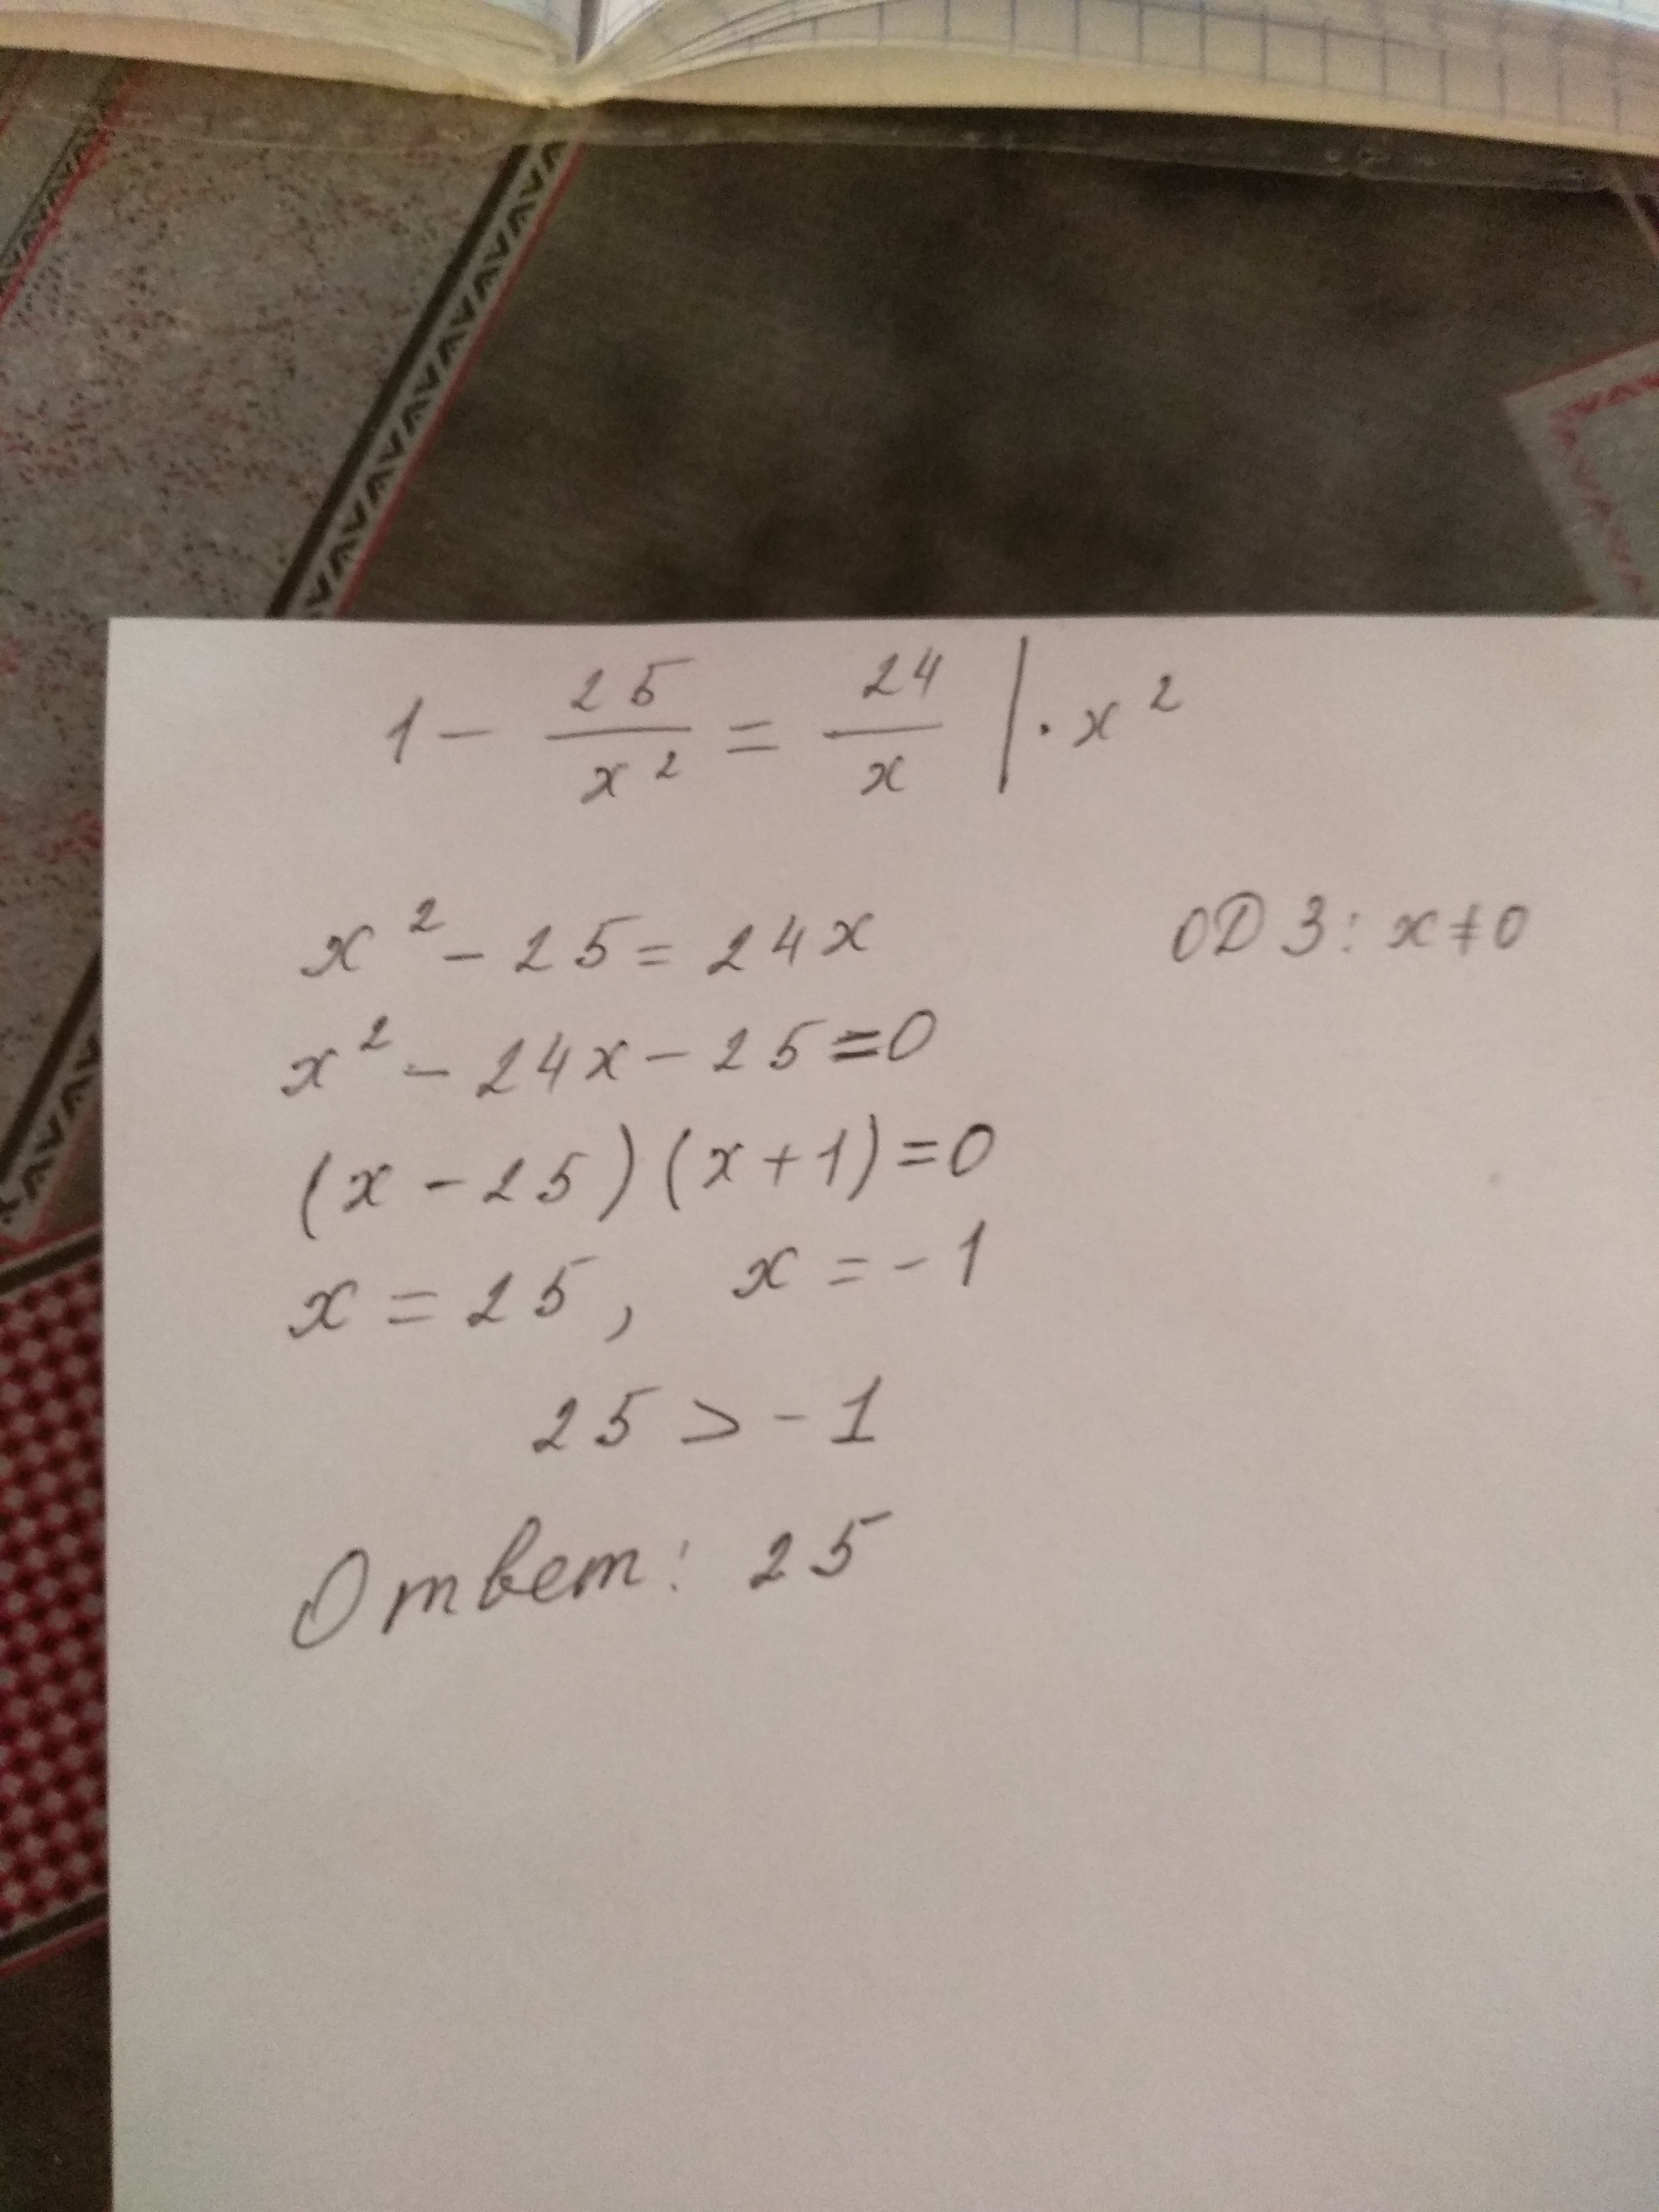 1 - 25/x² = 24/x | · x²
x² - 25 = 24x ОДЗ: x ≠ 0
x² - 24x - 25 = 0
(x - 25)(x + 1) = 0
x = 25, x = -1
25 > -1
Ответ: 25